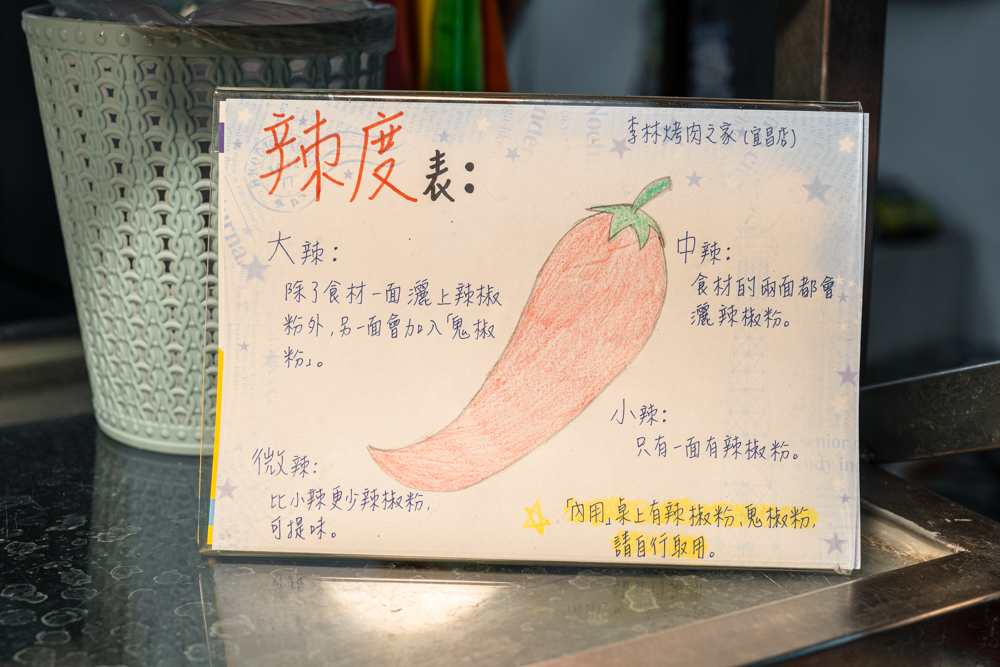 李林烤肉之家(宜昌店)
辣度表:
大辣:
除了食材一面灑上辣椒
粉外,另一面會加入「鬼椒
粉」。
中辣:
食材的兩面都會
灑辣椒粉。
小辣:
只有一面有辣椒粉。
微辣:
比小辣更少辣椒粉,
可提味。
「內用」桌上有辣椒粉、鬼椒粉,
請自行取用。